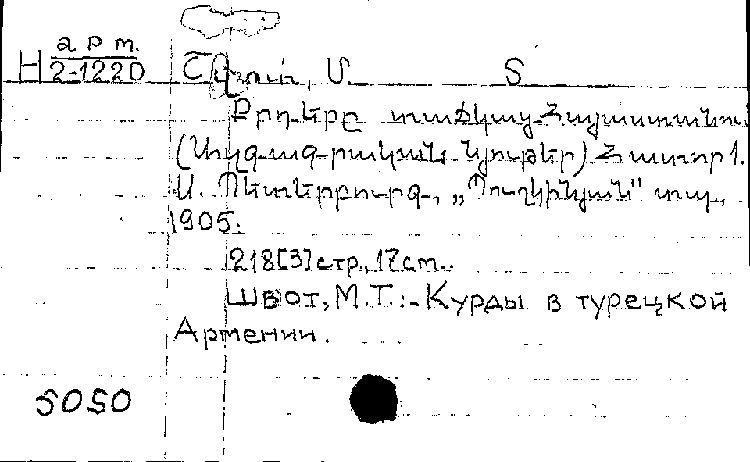 арт.
H 2-1220 Շզոտ, Մ. Տ
Քրդերը տաճկաց Հայաստանում
(Ազգագրական նյութեր) Հատոր 1.
Ս. Պետերբուրգ, „Պուշկինյան" տպ.,
1905.
218[3]стр., 17cm.
Швот, М.Т.:- Курды в турецкой
Армении.
5050